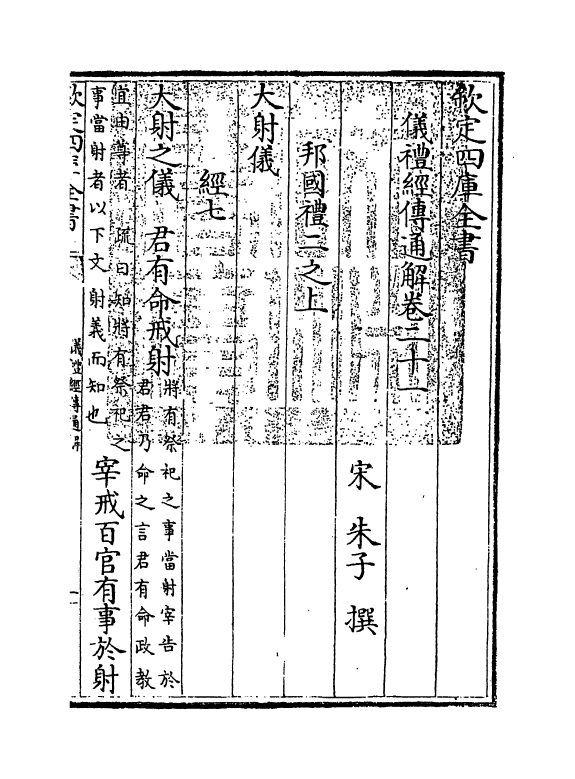 欽定四庫全書
儀禮經傳通解卷二十一
宋 朱子 撰
邦國禮二之上
大射儀
經七
大射之儀 君有命戒射 將有祭祀之事當射宰告於
君君乃命之言君有命政教
宜由尊者 疏曰知將有祭祀之
事當射者以下文 射義而知也
宰戒百官有事於射
欽定四庫全書
儀禮經傳通解
一